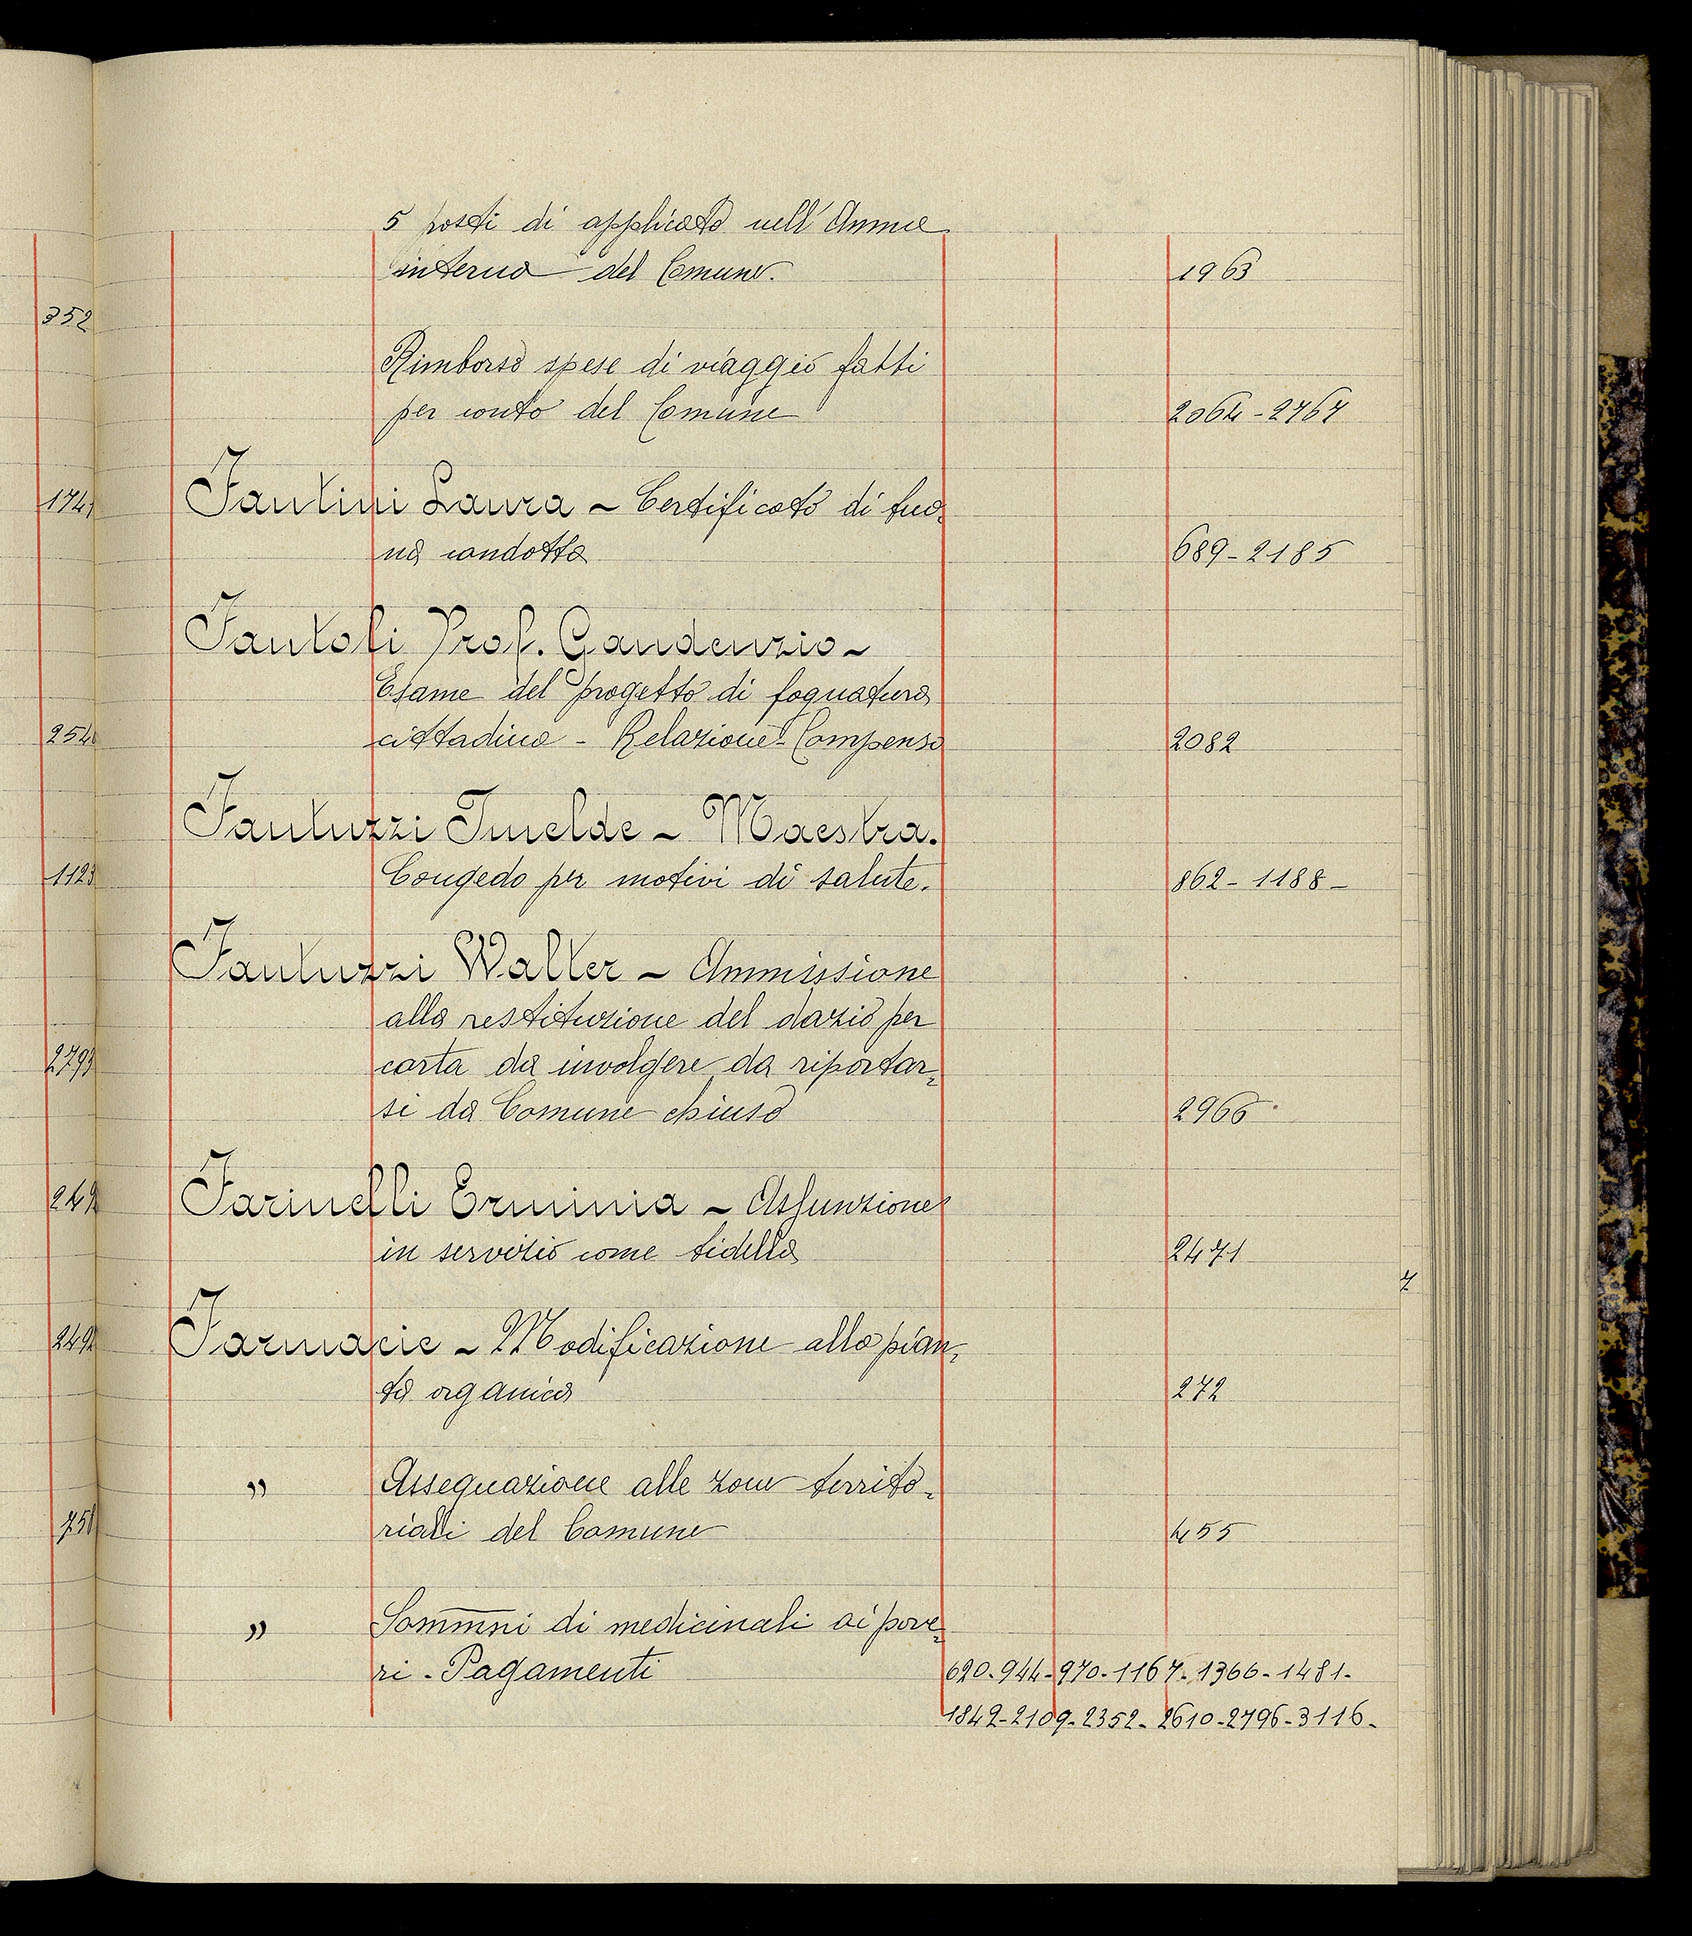 5 posti di applicato nell'Amm.e
interna del Comune.
1963
352
Rimborso spese di viaggio fatti
per conto del Comune
2064-2767
Fantini Laura ~ Certificato di buo=
1741
na condotta
689-2185
Fantoli Prof. Gaudenzio ~
Esame del progetto di fognatura
cittadina - Relazione - Compenso
2082
254
Fantuzzi Imelde ~ Maestra.
Congedo per motivi di salute.
862-1188-
1123
Fantuzzi Walter ~ Ammissione
alla restituzione del dazio per
carta da involgere da riportar=
2793
si da Comune chiuso
2966
Farinelli Erminia ~ Assunzione
249
in servizio come bidella
2471
Farmacie ~ Modificazione alla pian=
249
ta organica
272
" Assegnazione alle zone territo=
riali del Comune
455
758
" Sommni di medicinali ai pove=
ri - Pagamenti
620-944-970-1167-1366-1481-
1842-2109-2352-2610-2796-3116-
7